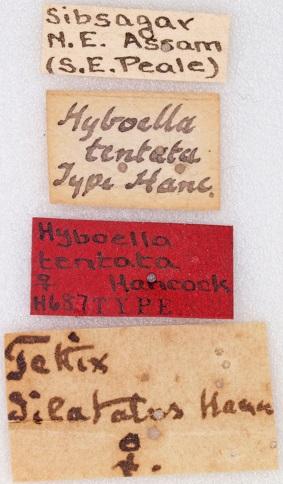 Sibsagar
N.E. Assam
(S.E. Peale)
Hyboella
tentata
Type Hanc.
Hyboella
tentata
♀ Hancock
H687 TYPE
Tettix
Dilatatus
♀.